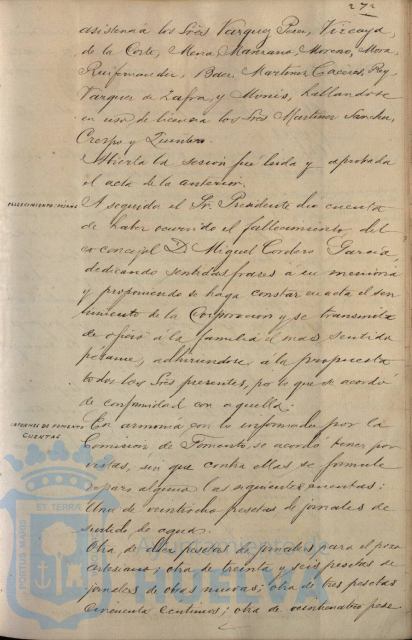 272
asistencia los Sres Vazquez Perez, Vizcaya,
de la Corte, Mena, Manzano, Moreno, Mora,
Ruifernandez, Baez, Martinez Caceres, Rey,
Vazquez de Zafra, y Monis, hallandose
en uso de licencia los Sres Martinez Sanchez,
Crespo y Quintero.
Abierta la sesión fué leida y aprobada
el acta de la anterior.
FALLECIMIENTO: PESAME
A seguida el Sr. Presidente dio cuenta
de haber ocurrido el fallecimiento del
ex concejal D. Miguel Cordero Garcia,
dedicando sentidas frases a su memoria
y proponiendo se haga constar en acta el sen
timiento de la Corporacion y se transmita
de oficio á la familia el mas sentido
pésame, adhiriendose a la propuesta
todos los Sres presentes, por lo que se acordó
de conformidad con aquella.
INFORMES DE FOMENTO
CUENTAS
En armonia con lo informado por la
Comision de Fomento, se acordó tener por
vistas, sin que contra ellas se formule
reparo alguno las siguientes cuentas:
Una de veintiocho pesetas de jornales de
surtido de aguas.
Otra de diez pesetas de jornales para el pozo
artesiano; otra de treinta y seis pesetas de
jornales de obras nuevas; otra de tres pesetas
cincuenta centimos; otra de veinticuatro pese
PORTUS MARIS
ET TERRAE
Ayuntamiento de
HUELVA